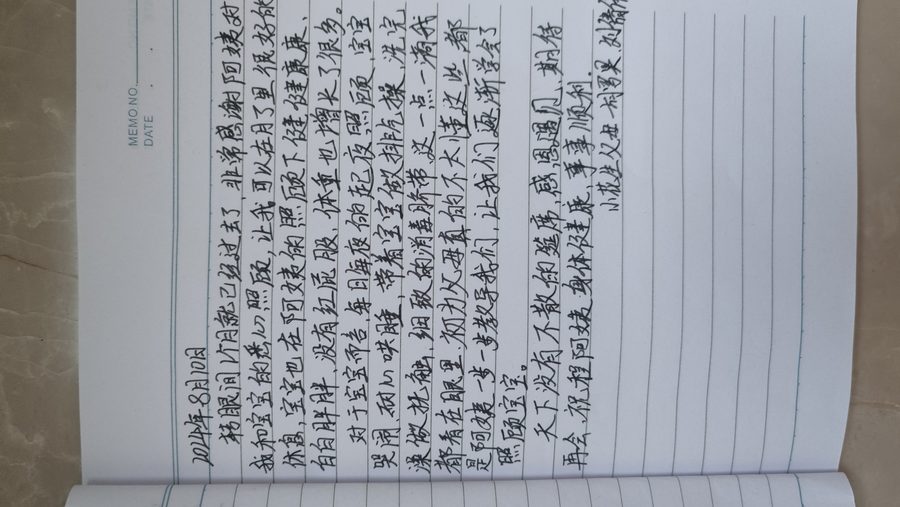 MEMO NO.
DATE
2024年8月10日
转眼间1个月就已经过去了,非常感谢阿姨对
我和宝宝的悉心照顾,让我可以在月子里很好的
休息,宝宝也在阿姨的照顾下健健康康、
白白胖胖,没有红屁股,体重也增长了很多。
对于宝宝而言每日每夜的起夜照顾,宝宝
哭闹,耐心哄睡,带着宝宝做排气操,洗完
澡做抚触,细致的消毒脐带这一点一滴我
都看在眼里,初为父母真的不太懂这些,都
是阿姨一步一步教导我们,让我们逐渐学会了
照顾宝宝。
天下没有不散的筵席,感恩遇见,期待
再会,祝程阿姨身体健康,事事顺利.
小花生父母